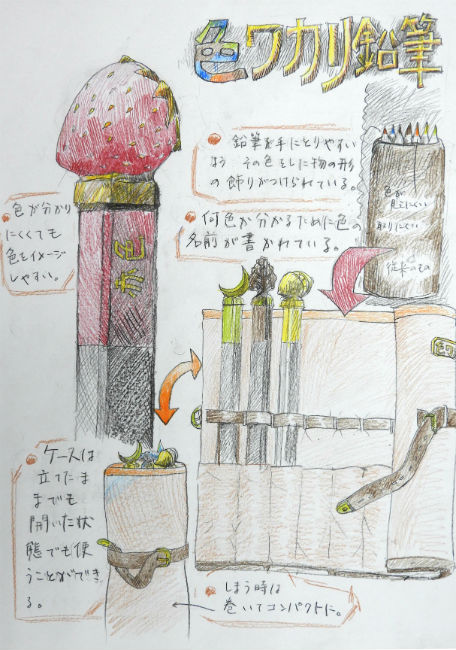 色ワカリ鉛筆
鉛筆を手にとりやすい
よう その色をした物の形
の飾りがつけられている。
何色が分かるために色の
名前が書かれている。
色が分かり
にくくても
色をイメージ
しやすい。
赤色
色が
見えにくい
取りにくい
従来のもの
ケースは
立てたま
までも
開いた状
態でも使
うことができ
る。
しまう時は
巻いてコンパクトに。